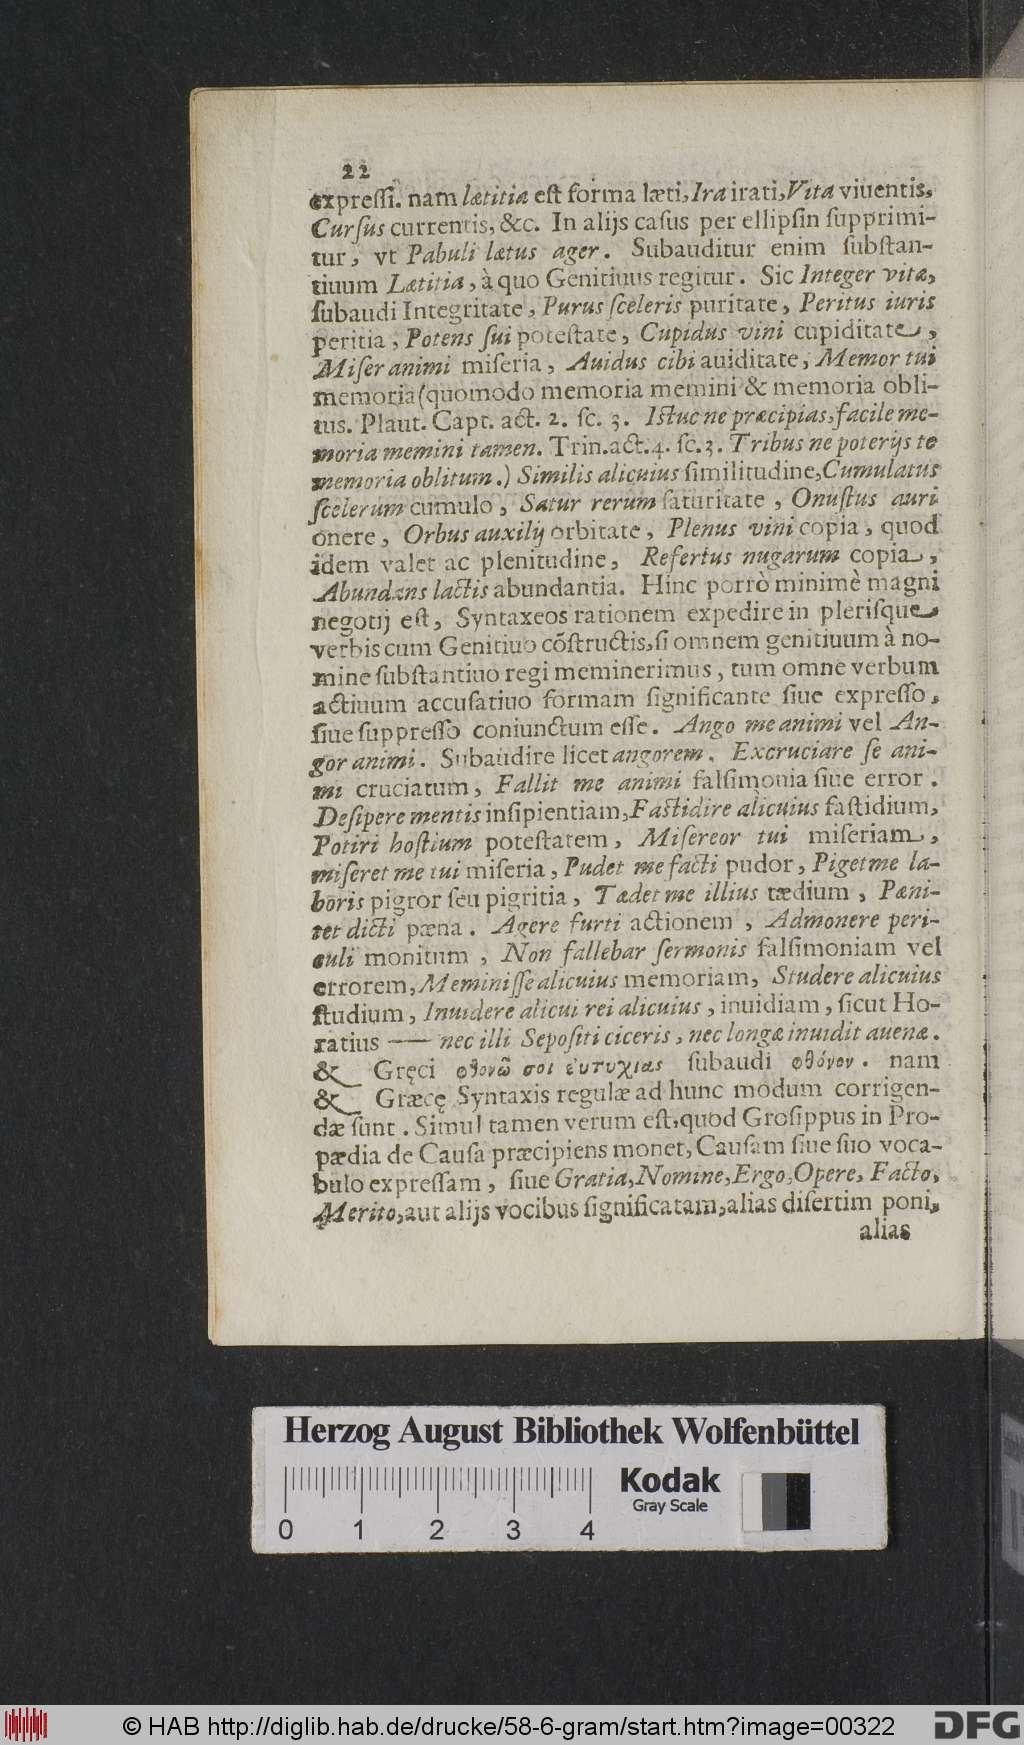 22
expreſſi. nam lætitia eſt forma læti, Ira irati, Vita viuentis,
Curſus currentis, &c. In alijs caſus per ellipſin ſupprimi-
tur, vt Pabuli lætus ager. Subauditur enim ſubſtan-
tiuum Lætitia, à quo Genitiuus regitur. Sic Integer vitæ,
ſubaudi Integritate, Purus ſceleris puritate, Peritus iuris
peritia, Potens ſui poteſtate, Cupidus vini cupiditate,
Miſer animi miſeria, Auidus cibi auiditate, Memor tui
memoria (quomodo memoria memini & memoria obli-
tus. Plaut. Capt. act. 2. ſc. 3. Iſtuc ne præcipias, facile me-
moria memini tamen. Trin. act. 4. ſc. 3. Tribus ne poterijs te
memoria oblitum.) Similis alicuius ſimilitudine, Cumulatus
ſcelerum cumulo, Satur rerum ſaturitate, Onuſtus auri
onere, Orbus auxilij orbitate, Plenus vini copia, quod
idem valet ac plenitudine, Refertus nugarum copia,
Abundans lactis abundantia. Hinc porrò minimè magni
negotij eſt, Syntaxeos rationem expedire in pleriſque
verbis cum Genitiuo cōſtructis, ſi omnem genitiuum à no-
mine ſubſtantiuo regi meminerimus, tum omne verbum
actiuum accuſatiuo formam ſignificante ſiue expreſſo,
ſiue ſuppreſſo coniunctum eſſe. Ango me animi vel An-
gor animi. Subaudire licet angorem. Excruciare ſe ani-
mi cruciatum, Fallit me animi falſimonia ſiue error.
Deſipere mentis inſipientiam, Faſtidire alicuius faſtidium,
Potiri hoſtium poteſtatem, Miſereor tui miſeriam,
miſeret me tui miſeria, Pudet me facti pudor, Piget me la-
boris pigror ſeu pigritia, Tædet me illius tædium, Pœni-
tet dicti pœna. Agere furti actionem, Admonere peri-
culi monitum, Non fallebar ſermonis falſimoniam vel
errorem, Meminiſſe alicuius memoriam, Studere alicuius
ſtudium, Inuidere alicui rei alicuius, inuidiam, ſicut Ho-
ratius —— nec illi Sepoſiti ciceris, nec longæ inuidit auenæ.
& Gręci φθονῶ σοι ἐυτυχιας ſubaudi φθόνον. nam
& Græcę Syntaxis regulæ ad hunc modum corrigen-
dæ ſunt. Simul tamen verum eſt, quod Groſippus in Pro-
pædia de Cauſa præcipiens monet, Cauſam ſiue ſuo voca-
bulo expreſſam, ſiue Gratia, Nomine, Ergo, Opere, Facto,
Merito, aut alijs vocibus ſignificatam, alias diſertim poni,
alias
Herzog August Bibliothek Wolfenbüttel
Kodak
Gray Scale
0 1 2 3 4
© HAB http://diglib.hab.de/drucke/58-6-gram/start.htm?image=00322
DFG